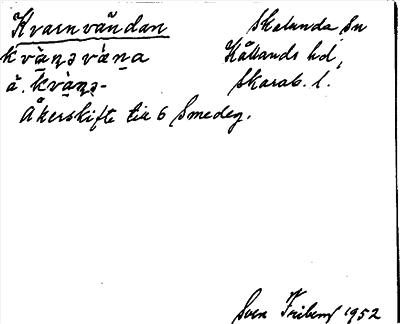 Kvarnvändan
Skalunda sn
kvàṇəvæ̀na
Kållands hd,
å. kvàṇə-
Skarab. l.
Åkerskifte till 6 Smedeg.
Sven Friberg 1952